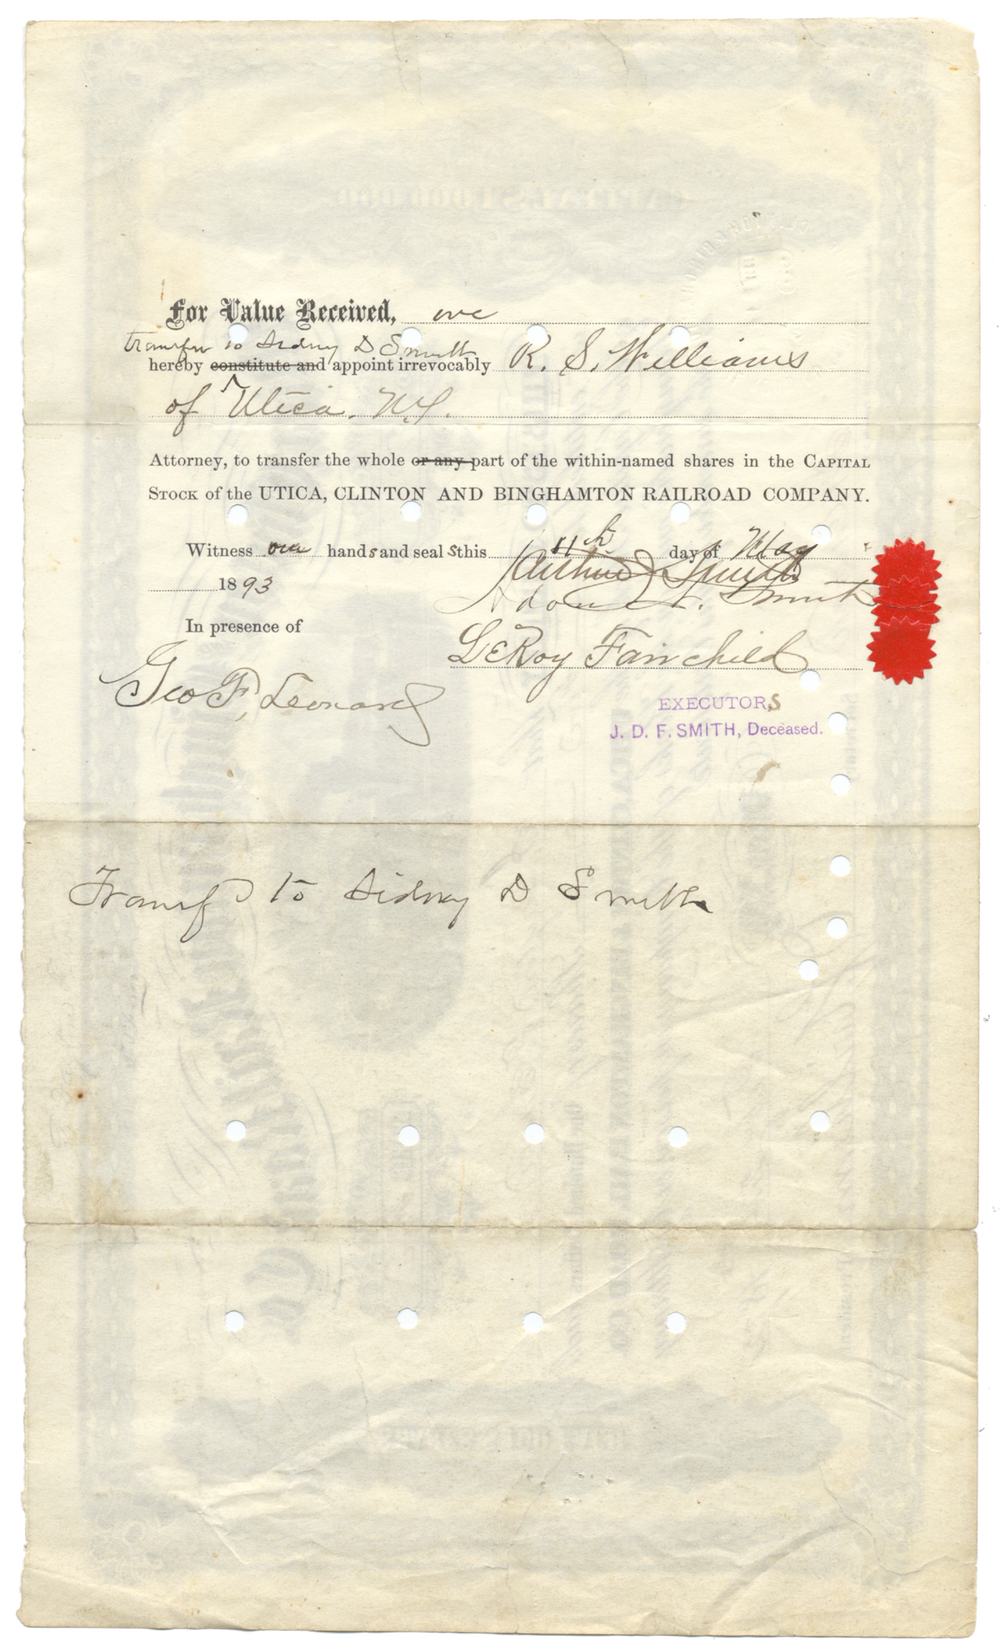 For Value Received, we
transfer to Sidney D Smith
hereby constitute and appoint irrevocably R. S. Williams
of Utica. N.Y.
Attorney, to transfer the whole or any part of the within-named shares in the CAPITAL
STOCK of the UTICA, CLINTON AND BINGHAMTON RAILROAD COMPANY.
Witness our hands and seals this 11th day of May
1893
Smith
In presence of
LeRoy Fairchild
Geo F. Leonard
EXECUTORS
J. D. F. SMITH, Deceased.
Transf to Sidney D Smith